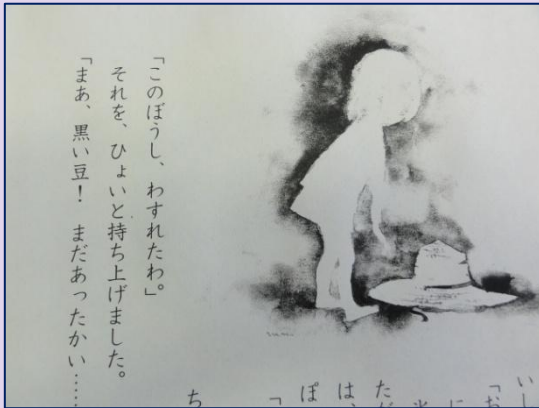 いし
「お
に
た
は、
ぽ
「
ち
「このぼうし、わすれたわ。」
それを、ひょいと持ち上げました。
「まあ、黒い豆！　まだあったかい……